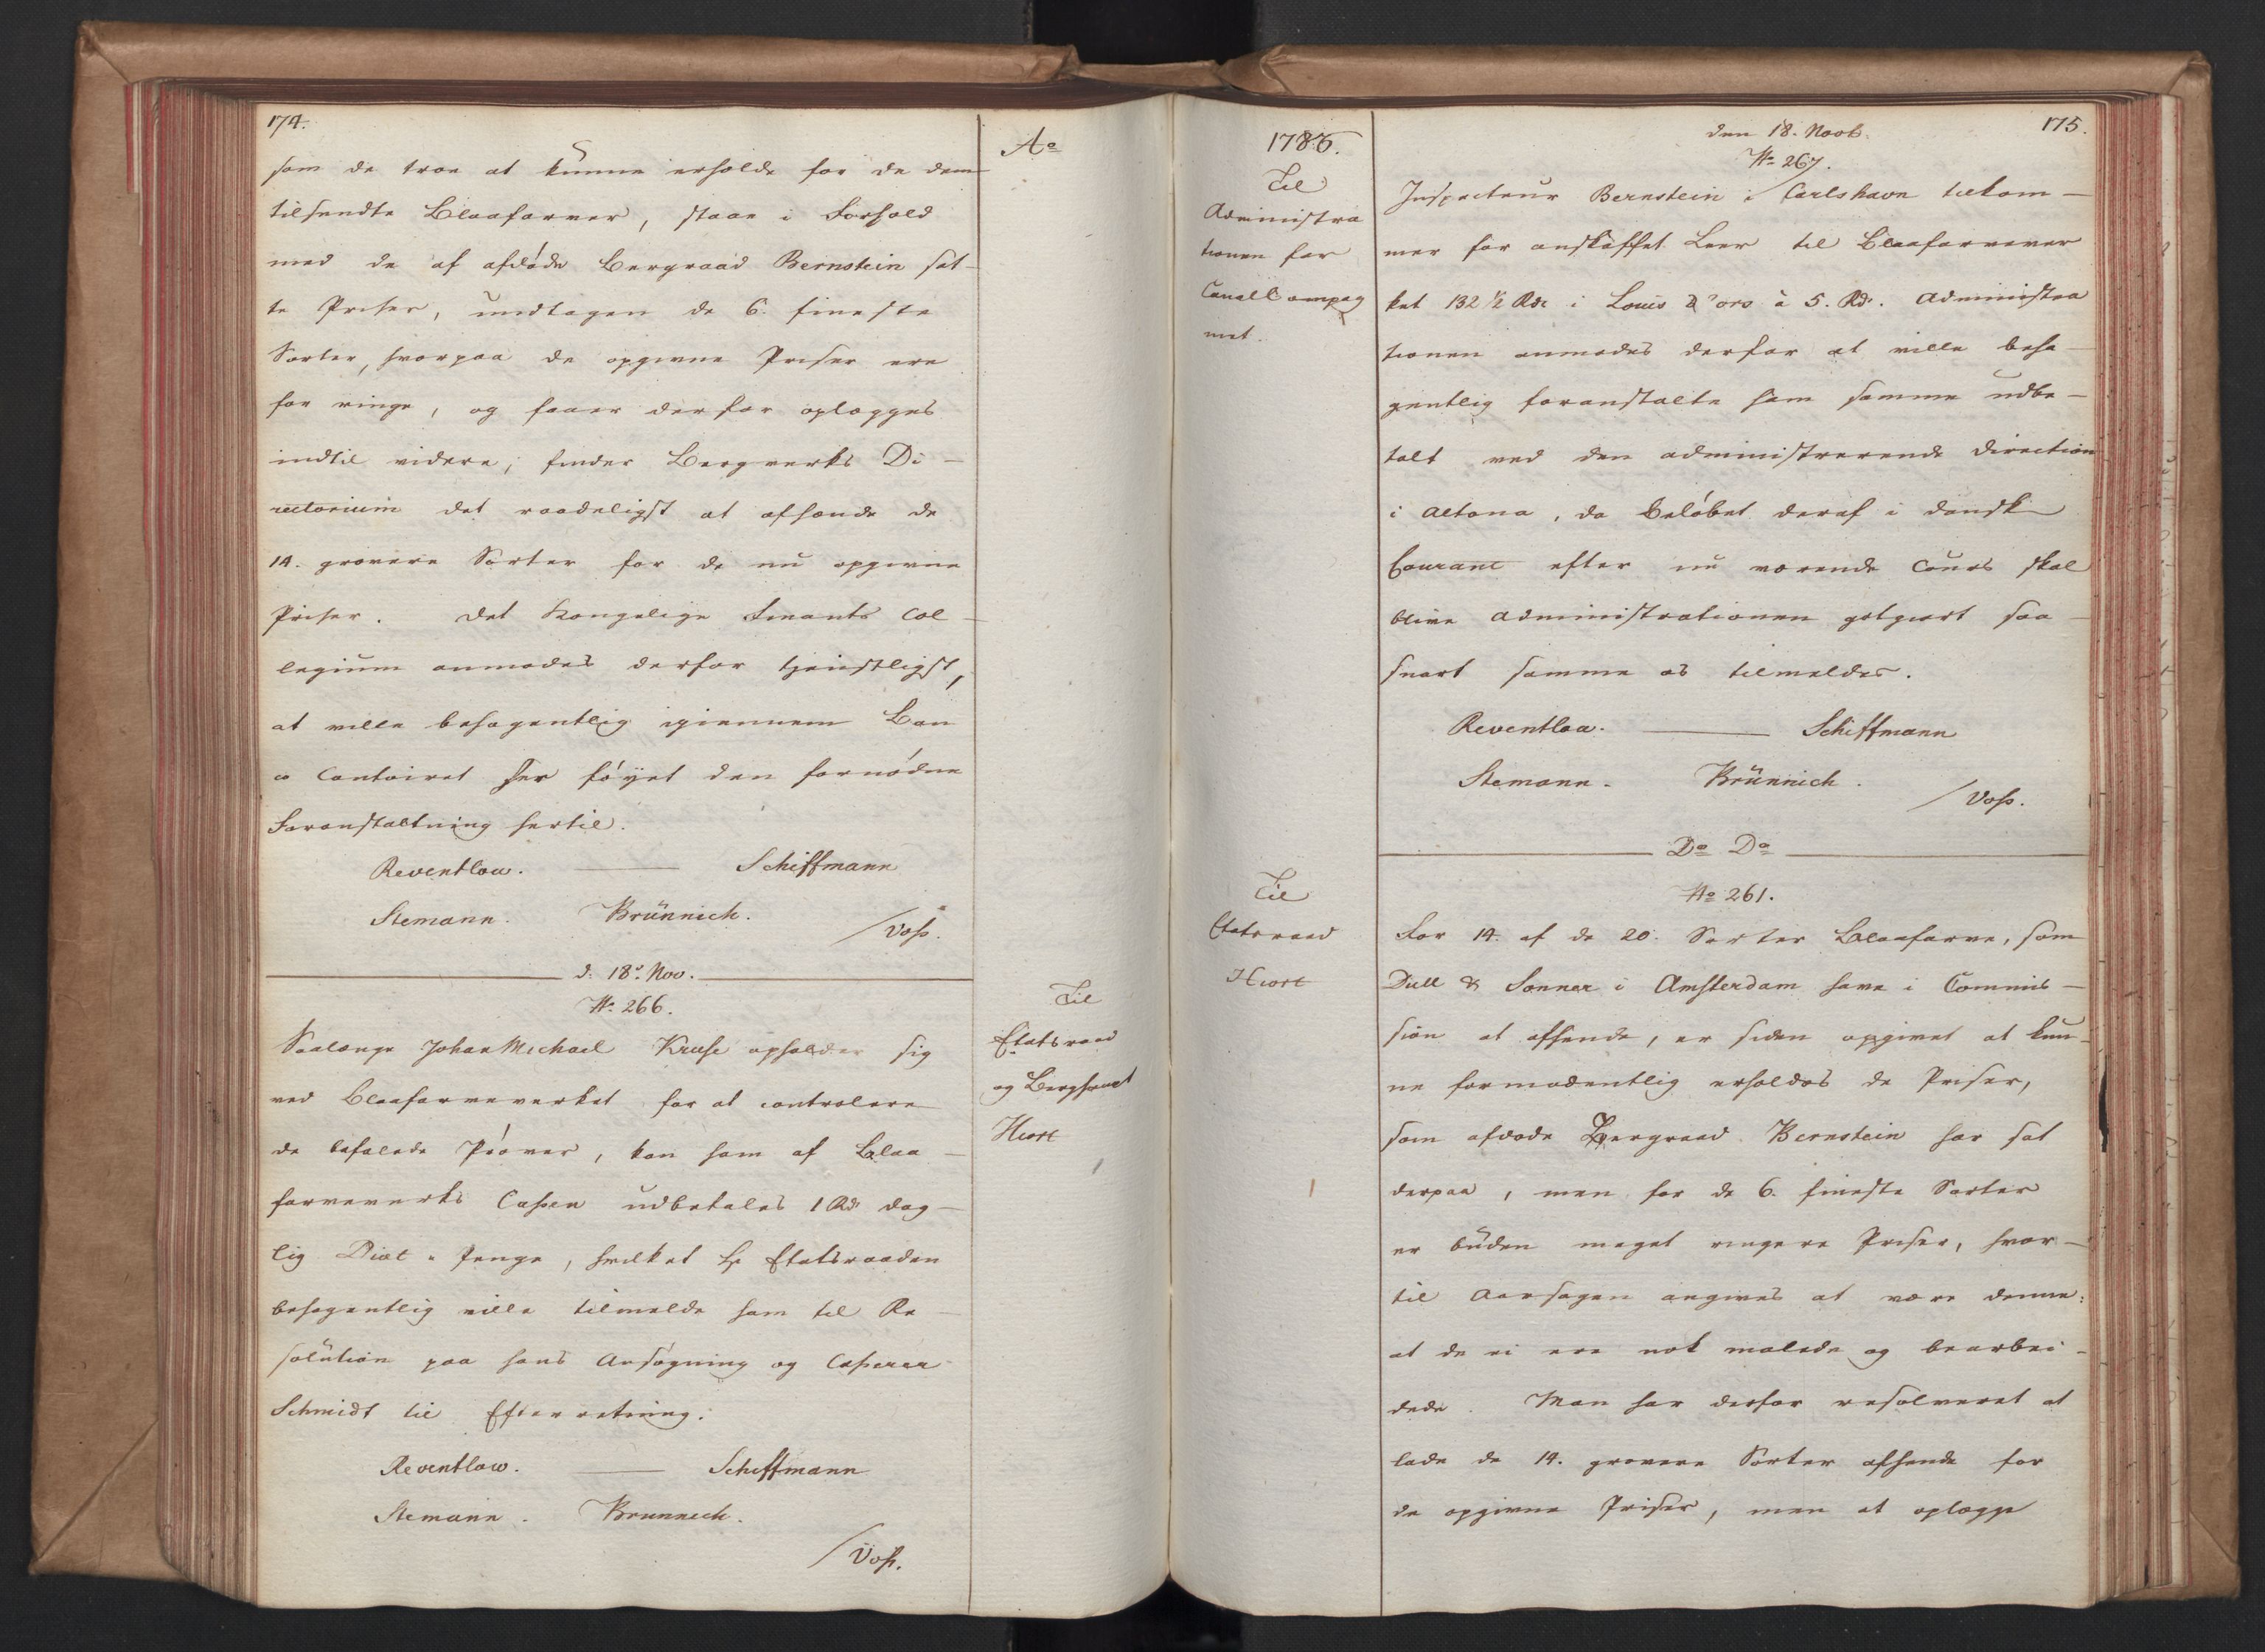 174.
Ao
som de troe at kunne erholde for de dem
tilsendte Blaafarver, staae i Forhold
med de af afdöde Bergraad Bernstein sat-
te Priser, undtagen de 6. fineste
Sorter, hvorpaa de opgivne Priser ere
for ringe, og faaer derfor oplægges
indtil videre; finder Bergverks Di-
rectorium det raadeligst at afhænde de
14. grovere Sorter for de nu opgivne
Priser. Det Kongelige Finants Col-
legium anmodes derfor tjenstligst,
at ville behagentlig igiennem Ban
co Contoiret föyet den fornödne
Foranstaltning hertil.
Reventlow. Schiffmann
Stemann. Brünnich.
/Voss.
d. 18de Nov.
No 266.
Til
Etatsraad
og Berghaupt
Hiort
Saalænge Johan Michael Kruse opholder sig
ved Blaafarveverket for at controlere
de befalede Pröver, kan ham af Blaa-
farveverks Cassen udbetales 1 Rdr dag-
lig Diæt-Penge, hvilket Hr Etatsraaden
behagentlig ville tilmelde ham til Re-
solution paa hans Ansögning og Casserer
Schmidt til Efterretning.
Reventlow. Schiffmann
Stemann. Brünnich.
/Voss.
1786.
175.
den 18. Novb.
No 267.
Til
Administra
tionen for
Canal Compag
niet.
Inspecteur Bernstein i Carlshavn tilkom-
mer for anskaffet Leer til Blaafarvever
ket 132 1/2 Rdr i Louis d'ors à 5. Rdr. Administra
tionen anmodes derfor at ville beha-
gentlig foranstalte ham samme udbe-
talt ved den administrerende Direction
i Altona, da Belöbet deraf i dansk
Courant efter nu værende Cours skal
blive Administrationen gotgiort saa-
snart samme os tilmeldes.
Reventlow. Schiffmann
Stemann. Brünnich.
/Voss.
Do Do
No 261.
Til
Etatsraad
Hiort
For 14. af de 20. Sorter Blaafarve, som
Dull & Sönner i Amsterdam have i Commis-
sion at afhænde, er siden opgivet at kun-
ne formodentlig erholdes de Priser,
som afdöde Bergraad Bernstein har sat
derpaa, men for de 6. fineste Sorter
er buden meget ringere Priser, hvor-
til Aarsagen angives at være denne:
at de ei ere nok malede og bearbei-
dede. Man har derfor resolveret at
lade de 14. grovere Sorter afhænde for
de opgivne Priser, men at oplægge